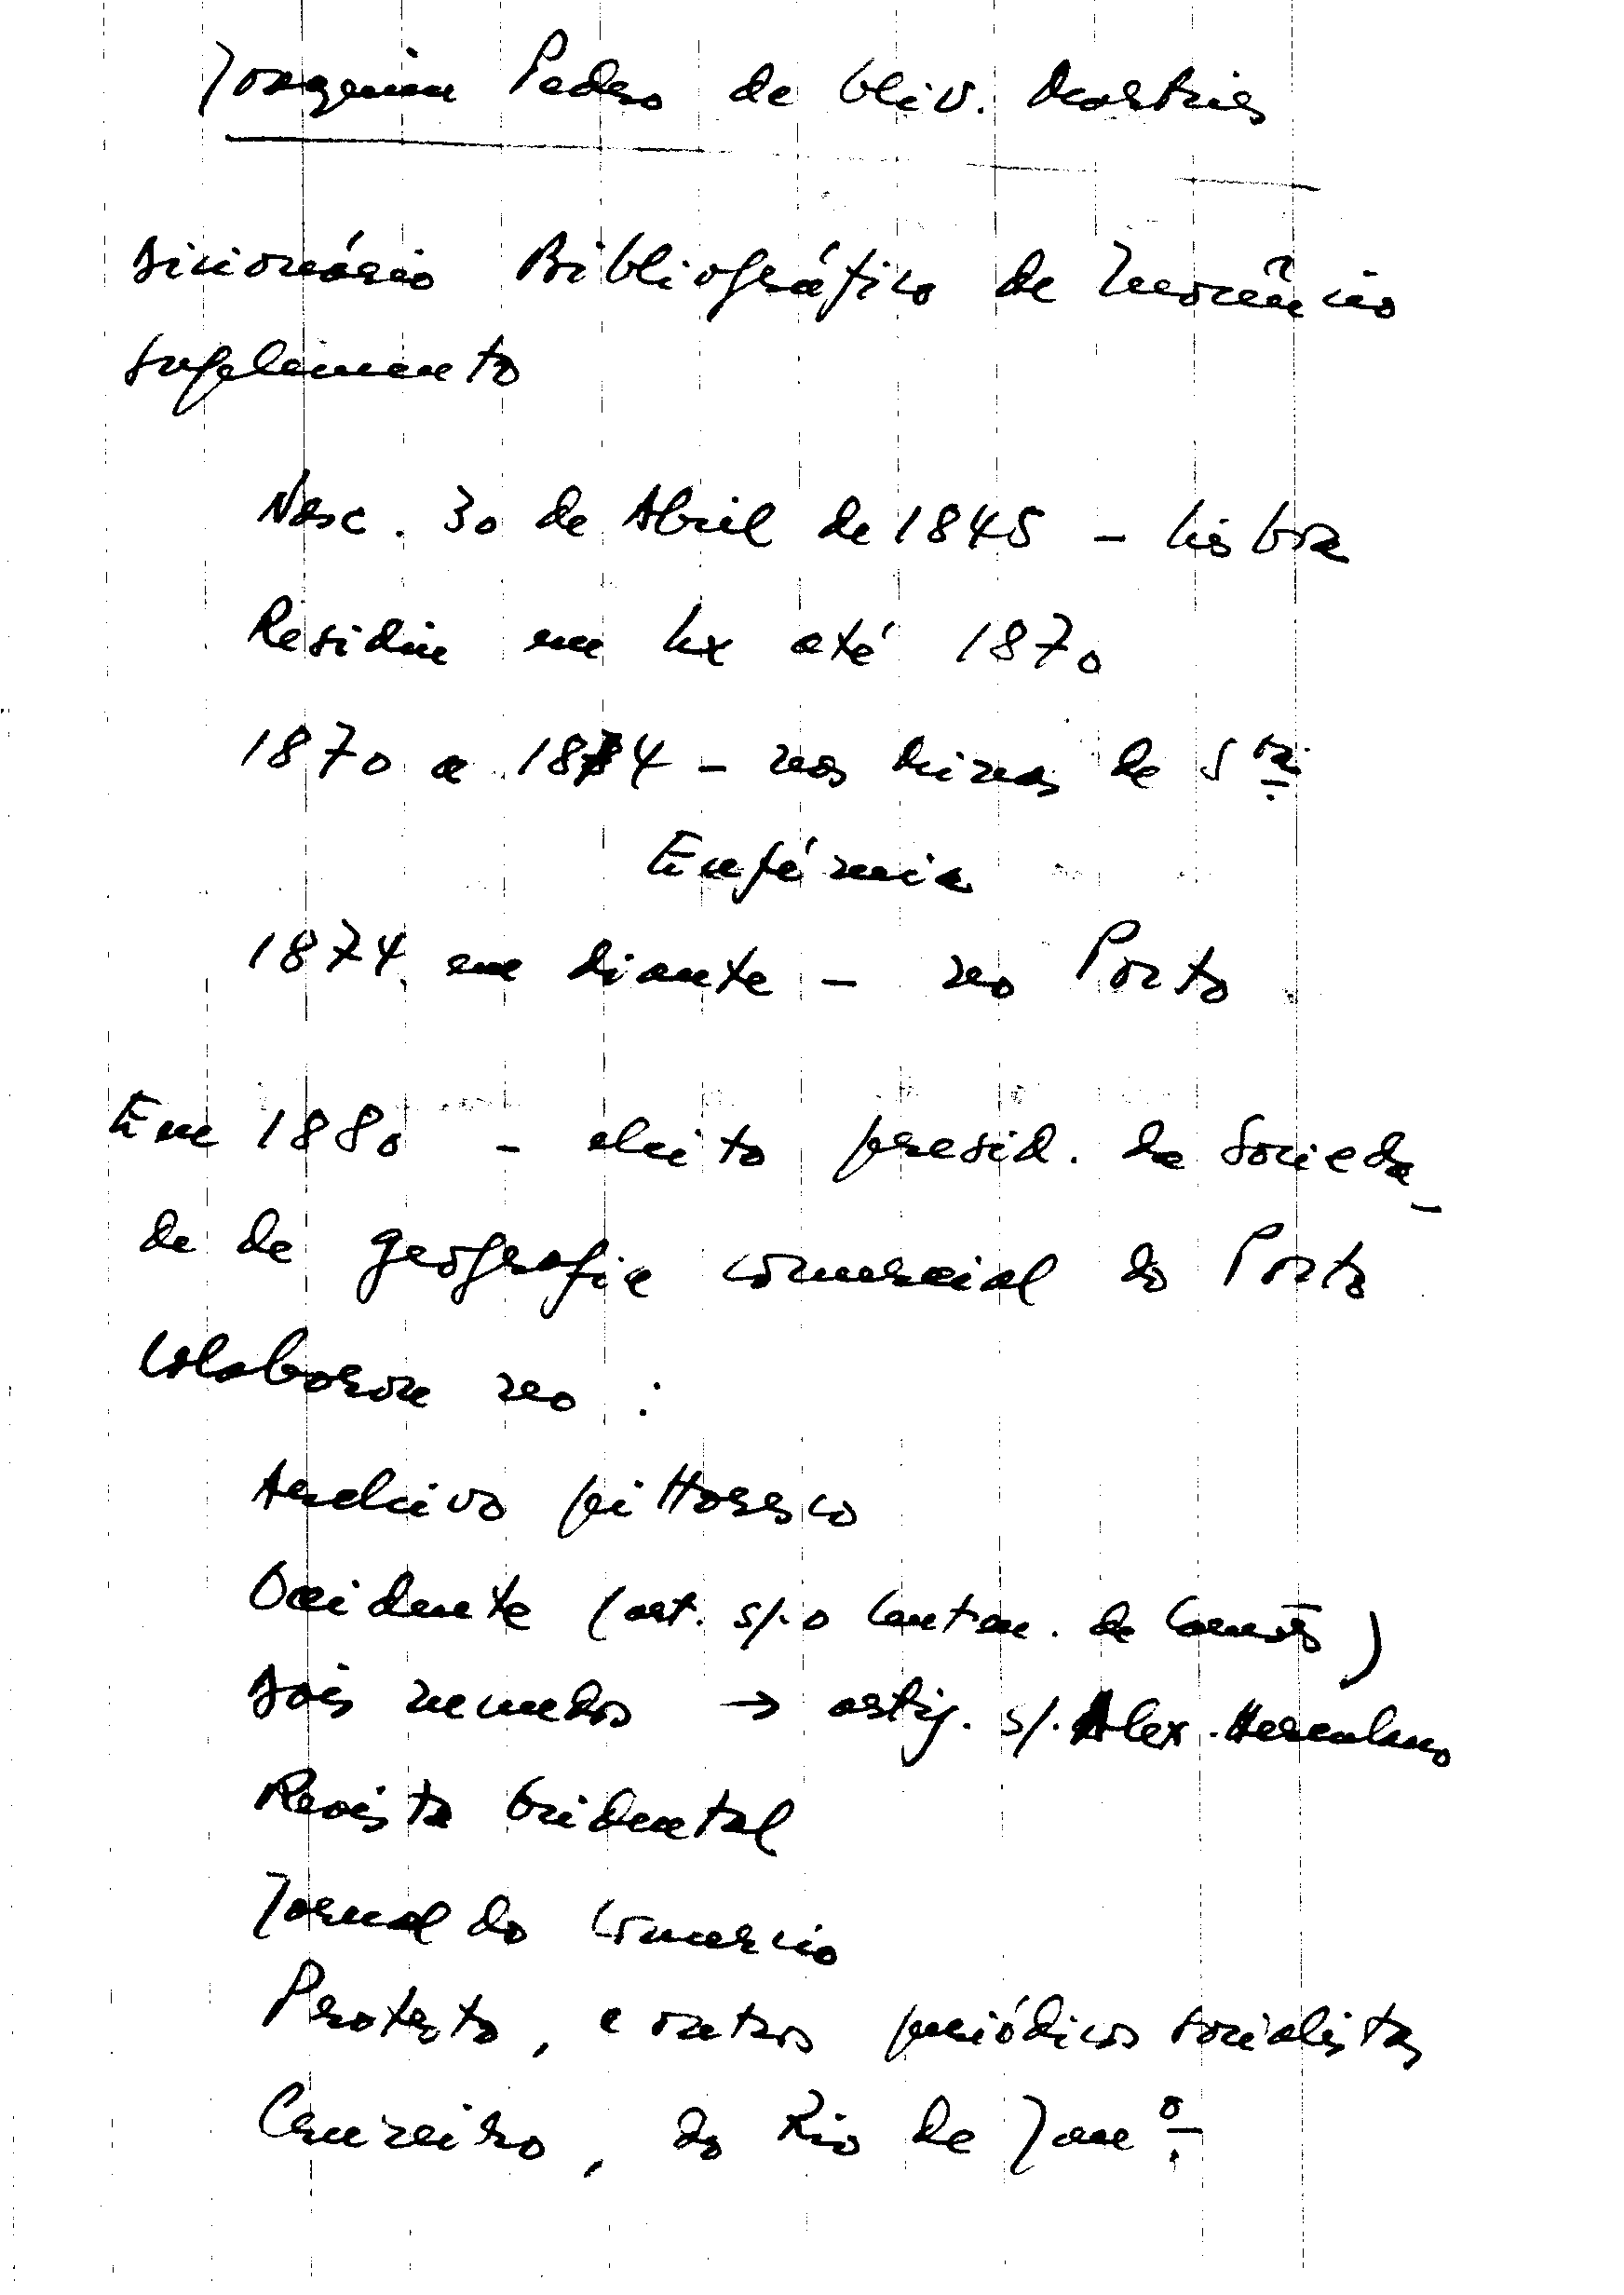 Joaquim Pedro de Oliv. Martins
Dicionário Bibliográfico de Inocêncio
Suplemento
Nasc. 30 de Abril de 1845 - Lisboa
Residiu em Lx até 1870
1870 a 1874 - nas minas de Sta.
Eufémia
1874 em diante - no Porto
Em 1880 - eleito presid. da Socieda-
de de geografia comercial do Porto
Colaborou no :
Archivo pittoresco
Ocidente (art. s/. o Centen. de Camões)
Dois mundos → artig. s/. Alex. Herculano
Revista Ocidental
Jornal do Comercio
Protesto, e outros periódicos socialistas
Cruzeiro, do Rio de Janº.